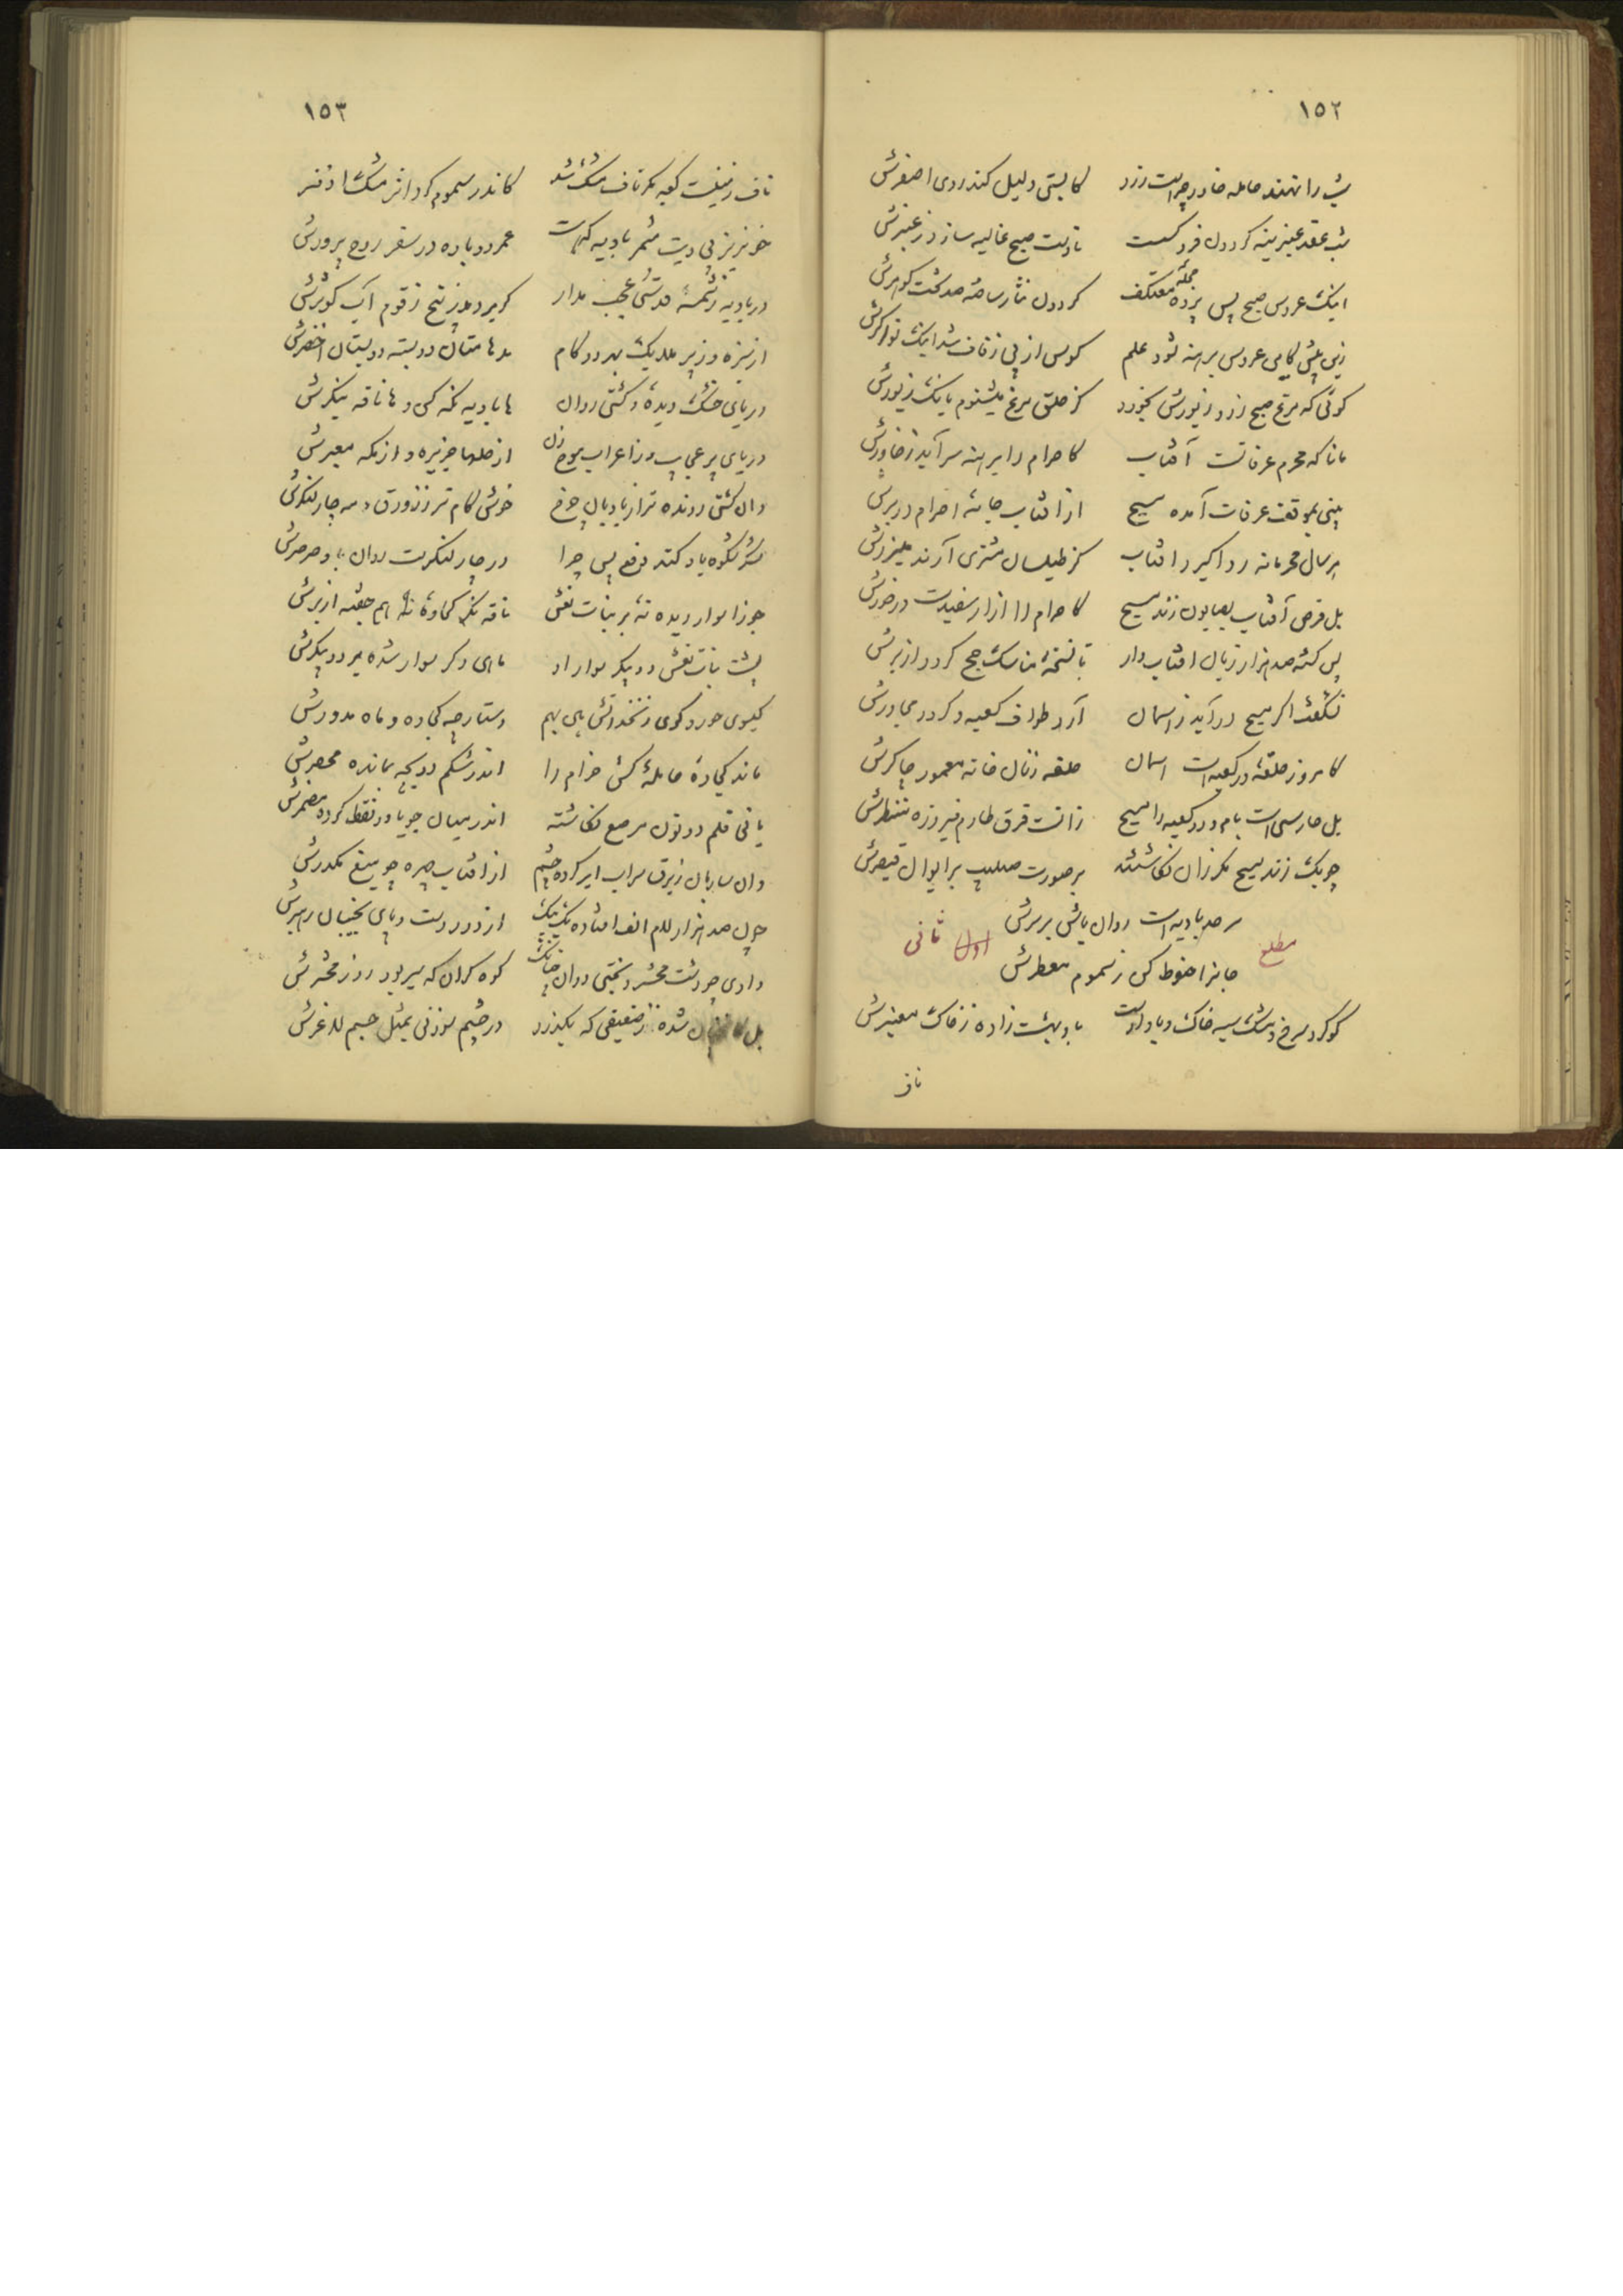 ١٥٢
شب را نهند حامله خاور چراست زرد کابستی دلیل کند روی اصفرش
شب عقد عنبرینه گردون فرو گسست تا دست صبح غالیه سازد ز عنبرش
اینک عروس صبح پس پرده معتکف گردون نثار ساخته صد تخت گوهرش
زین پیش کابین عروس برهنه شود علم کوس از پی زفاف شد اینک نواگرش
گوئی که مرغ صبح زر و زیورش بخورد کز حلق مرغ میشنوم بانک زیورش
مانا که محرم عرفاتست آفتاب کاحرام را برهنه سر آید ز خاورش
بینی بموقف عرفات آمده مسیح از آفتاب جامه احرام در برش
هر سال محرمانه ردا گیرد آفتاب کز طیلسان مشتری آرند میزرش
بل قرص آفتاب بصابون زند مسیح کاحرام را ازار سفیدست درخورش
پس گشته صد هزار زبان آفتاب وار تا نسخه مناسک حج گردد از برش
نشگفت اگر مسیح درآید ز آسمان آرد طواف کعبه و گردد مجاورش
کامروز حلقه در کعبه است آسمان حلقه زنان خانه معمور چاکرش
بل حارسی است بام و در کعبه را مسیح زانست فرق طارم فیروزه منظرش
چوبک زند مسیح مگر زان نگاشتند بر صورت صلیب بر ایوان قیصرش
مطلع اول ثانی
سرحد بادیه است روان باش بر سرش
جانرا حنوط کن ز سموم معطرش
گوگرد سرخ و مشک سیه خاک و باد اوست باد بهشت زاده ز خاک معنبرش
ناف
١٥٣
ناف زمینست کعبه مگر ناف مشک شد کاندر سموم کرد اثر مشک اذفر
خونریز بی دیت مشمر بادیه که هست عمر دوباره در سفر روح پرورش
در بادیه ز شمه قدسی عجب مدار گر بر دمد ز بیخ زقوم آب کوثرش
از سبزه و ز پر ملایک بهر دو گام مدهامتان دو بسته دو بستان اخضرش
دریای خشک دیده و کشتی روان ها بادیه نگه کن و ها ناقه بنگرش
دریای پر عجایب و ز اعراب موج زن از حلها جزیره و از مکه معبرش
وان کشتی رونده تر از بادبان چرخ خوش گام تر ز زورق و مه چار لنگرش
در چار لنگرست روان باد صرصرش
جوزا سوار دیده نه بر بنات نعش ناقه نگر کجاوه هم جفته از برش
پشت بنات نعش و دو پیکر سوار او ماهی دگر سوار شده بر دو پیکرش
گیسوی حور و گوی زنخدانش بین بهم دستارچه کجاوه و ماه مدورش
ماند کجاوه حامله خوش خرام را اندر شکم دو بچه بمانده محصرش
یا نی قلم دو نون مرصع نگاشته اندر میان چو تا دو نقط کرده مضمرش
وان ساربان ز برق سراب ابر کرده چشم از آفتاب چهره چو میغ مکدرش
چون صد هزار لام الف افتاده یک بیک از دور دست و پای نجیبان رهبرش
وادی چو دشت محشر و بختی روان چنانک کوه گران که سیر بود روز محشرش
در چشم سوزنی بمثل جسم لاغرش